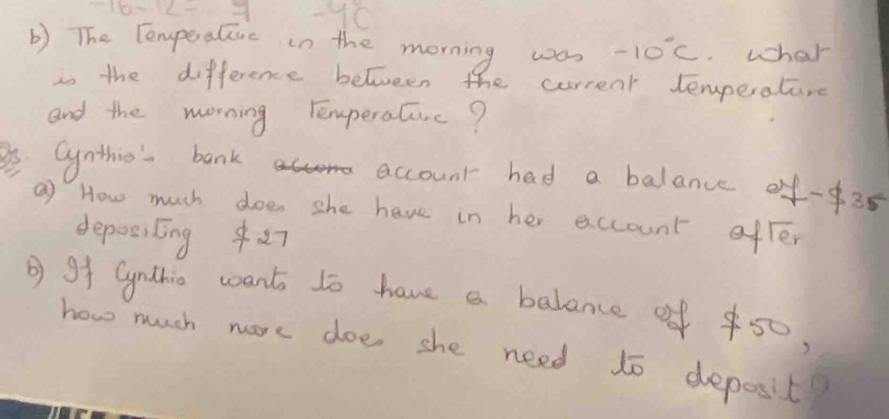 -16-12= 9 -4C
b) The Temperature in the morning was -10°C. What
is the difference between the current temperature
and the morning Temperature?
Q3. Cynthia's bank account had a balance of -$35
a) How much does she have in her account after
depositing $27
b) If Cynthia wants to have a balance of $50,
how much more does she need to deposit?